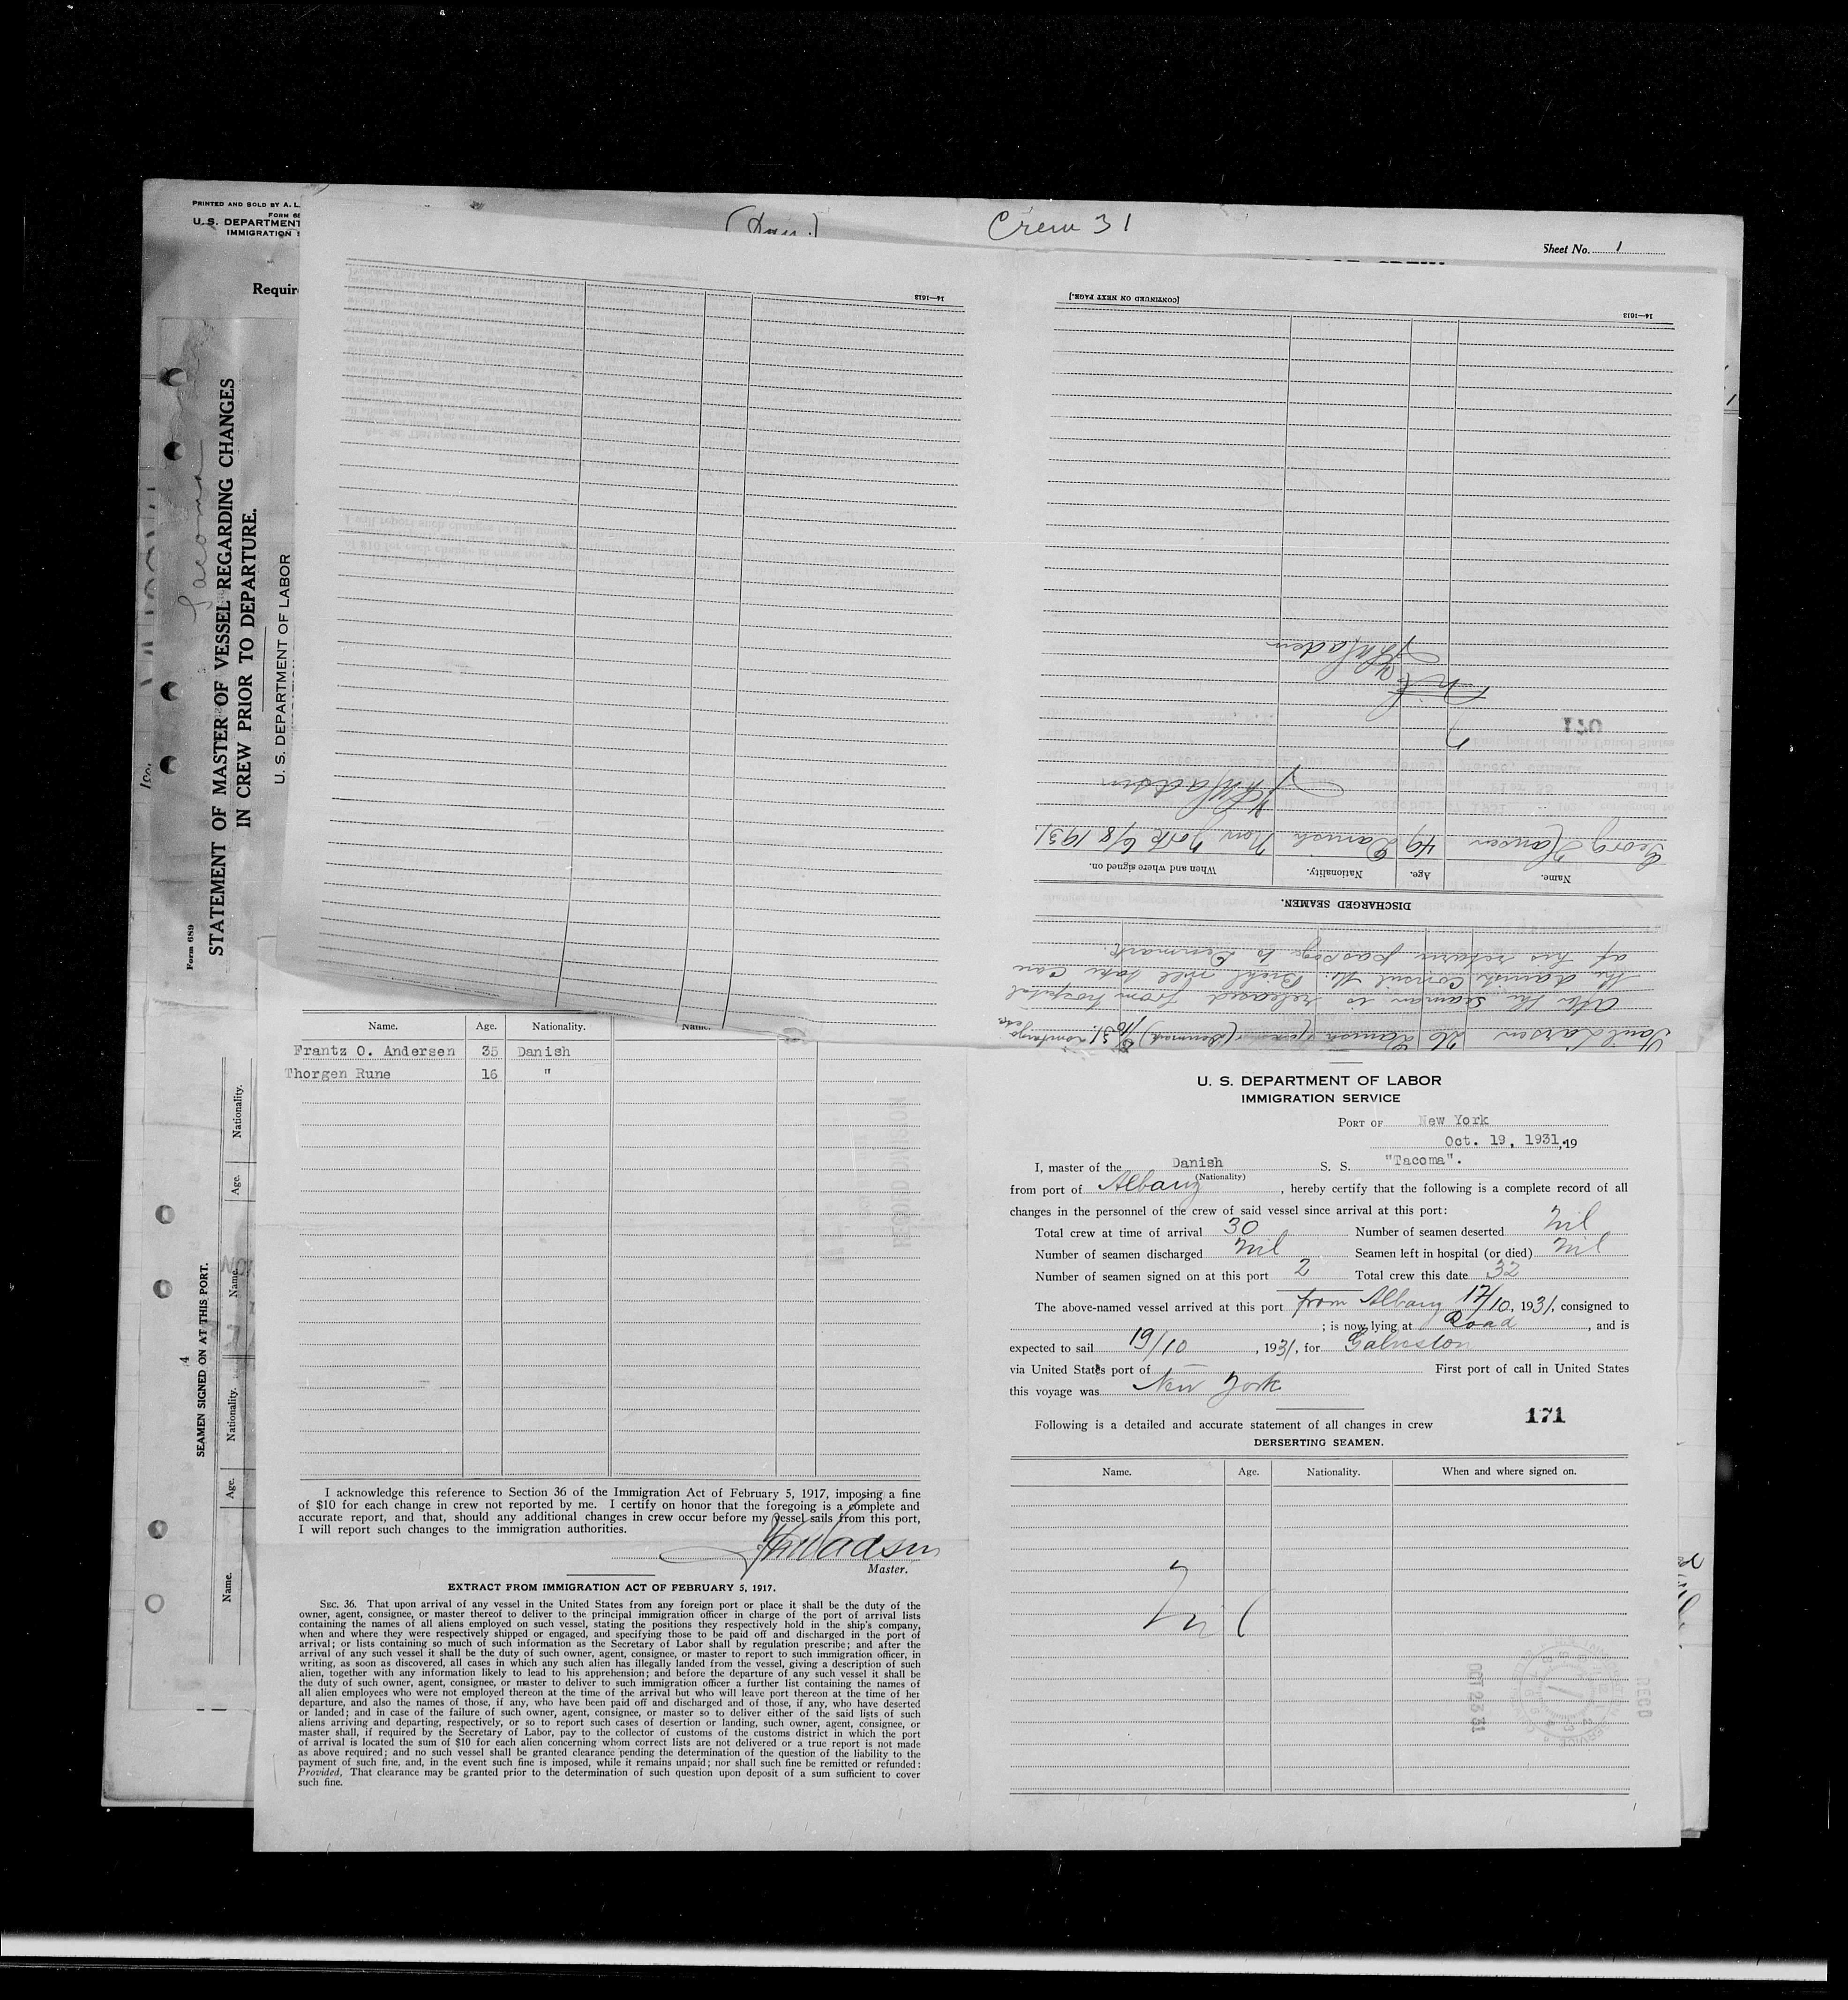 PRINTED AND SOLD BY A. L.
U. S. DEPARTMENT
IMMIGRATION
Crew 31
Sheet No. 1
Form 689
STATEMENT OF MASTER OF VESSEL REGARDING CHANGES
IN CREW PRIOR TO DEPARTURE.
U. S. DEPARTMENT OF LABOR
Tacoma
SEAMEN SIGNED ON AT THIS PORT.
Name. Age. Nationality. Name. Age. Nationality.
14—1613
[CONTINUED ON NEXT PAGE.]
14—1613
Paul Larsen 26 Danish
After the seaman is released from hospital
the danish Consul Mr. Biehl will take care
of his return passage to Denmark.
DISCHARGED SEAMEN.
Name. Age. Nationality. When and where signed on.
Georg Hansen 49 Danish New York 6/8 1931
170
Name. Age. Nationality. Name.
Frantz O. Andersen 35 Danish
Thorgen Rune 16 "
I acknowledge this reference to Section 36 of the Immigration Act of February 5, 1917, imposing a fine
of $10 for each change in crew not reported by me. I certify on honor that the foregoing is a complete and
accurate report, and that, should any additional changes in crew occur before my vessel sails from this port,
I will report such changes to the immigration authorities.
Master.
EXTRACT FROM IMMIGRATION ACT OF FEBRUARY 5, 1917.
SEC. 36. That upon arrival of any vessel in the United States from any foreign port or place it shall be the duty of the
owner, agent, consignee, or master thereof to deliver to the principal immigration officer in charge of the port of arrival lists
containing the names of all aliens employed on such vessel, stating the positions they respectively hold in the ship's company,
when and where they were respectively shipped or engaged, and specifying those to be paid off and discharged in the port of
arrival; or lists containing so much of such information as the Secretary of Labor shall by regulation prescribe; and after the
arrival of any such vessel it shall be the duty of such owner, agent, consignee, or master to report to such immigration officer, in
writing, as soon as discovered, all cases in which any such alien has illegally landed from the vessel, giving a description of such
alien, together with any information likely to lead to his apprehension; and before the departure of any such vessel it shall be
the duty of such owner, agent, consignee, or master to deliver to such immigration officer a further list containing the names of
all alien employees who were not employed thereon at the time of the arrival but who will leave port thereon at the time of her
departure, and also the names of those, if any, who have been paid off and discharged and of those, if any, who have deserted
or landed; and in case of the failure of such owner, agent, consignee, or master so to deliver either of the said lists of such
aliens arriving and departing, respectively, or so to report such cases of desertion or landing, such owner, agent, consignee, or
master shall, if required by the Secretary of Labor, pay to the collector of customs of the customs district in which the port
of arrival is located the sum of $10 for each alien concerning whom correct lists are not delivered or a true report is not made
as above required; and no such vessel shall be granted clearance pending the determination of the question of the liability to the
payment of such fine, and, in the event such fine is imposed, while it remains unpaid; nor shall such fine be remitted or refunded:
Provided, That clearance may be granted prior to the determination of such question upon deposit of a sum sufficient to cover
such fine.
U. S. DEPARTMENT OF LABOR
IMMIGRATION SERVICE
PORT OF New York
Oct. 19, 1931, 19
I, master of the Danish S. S. "Tacoma".
(Nationality)
from port of Albany, hereby certify that the following is a complete record of all
changes in the personnel of the crew of said vessel since arrival at this port:
Total crew at time of arrival 30 Number of seamen deserted Nil
Number of seamen discharged Nil Seamen left in hospital (or died) Nil
Number of seamen signed on at this port 2 Total crew this date 32
The above-named vessel arrived at this port from Albany 17/10, 1931, consigned to
; is now lying at Road, and is
expected to sail 19/10, 1931, for Galveston
via United States port of — First port of call in United States
this voyage was New York
Following is a detailed and accurate statement of all changes in crew
171
DERSERTING SEAMEN.
Name. Age. Nationality. When and where signed on.
Nil
OCT 23 31
RECD